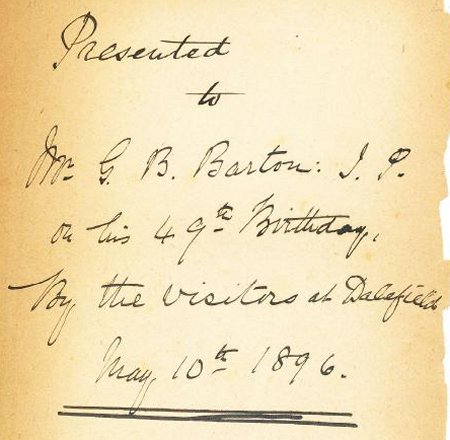 Presented
to
Mr. G. B. Barton: J. P.
on his 49th Birthday,
By the visitors at Dalefield
May 10th 1896.